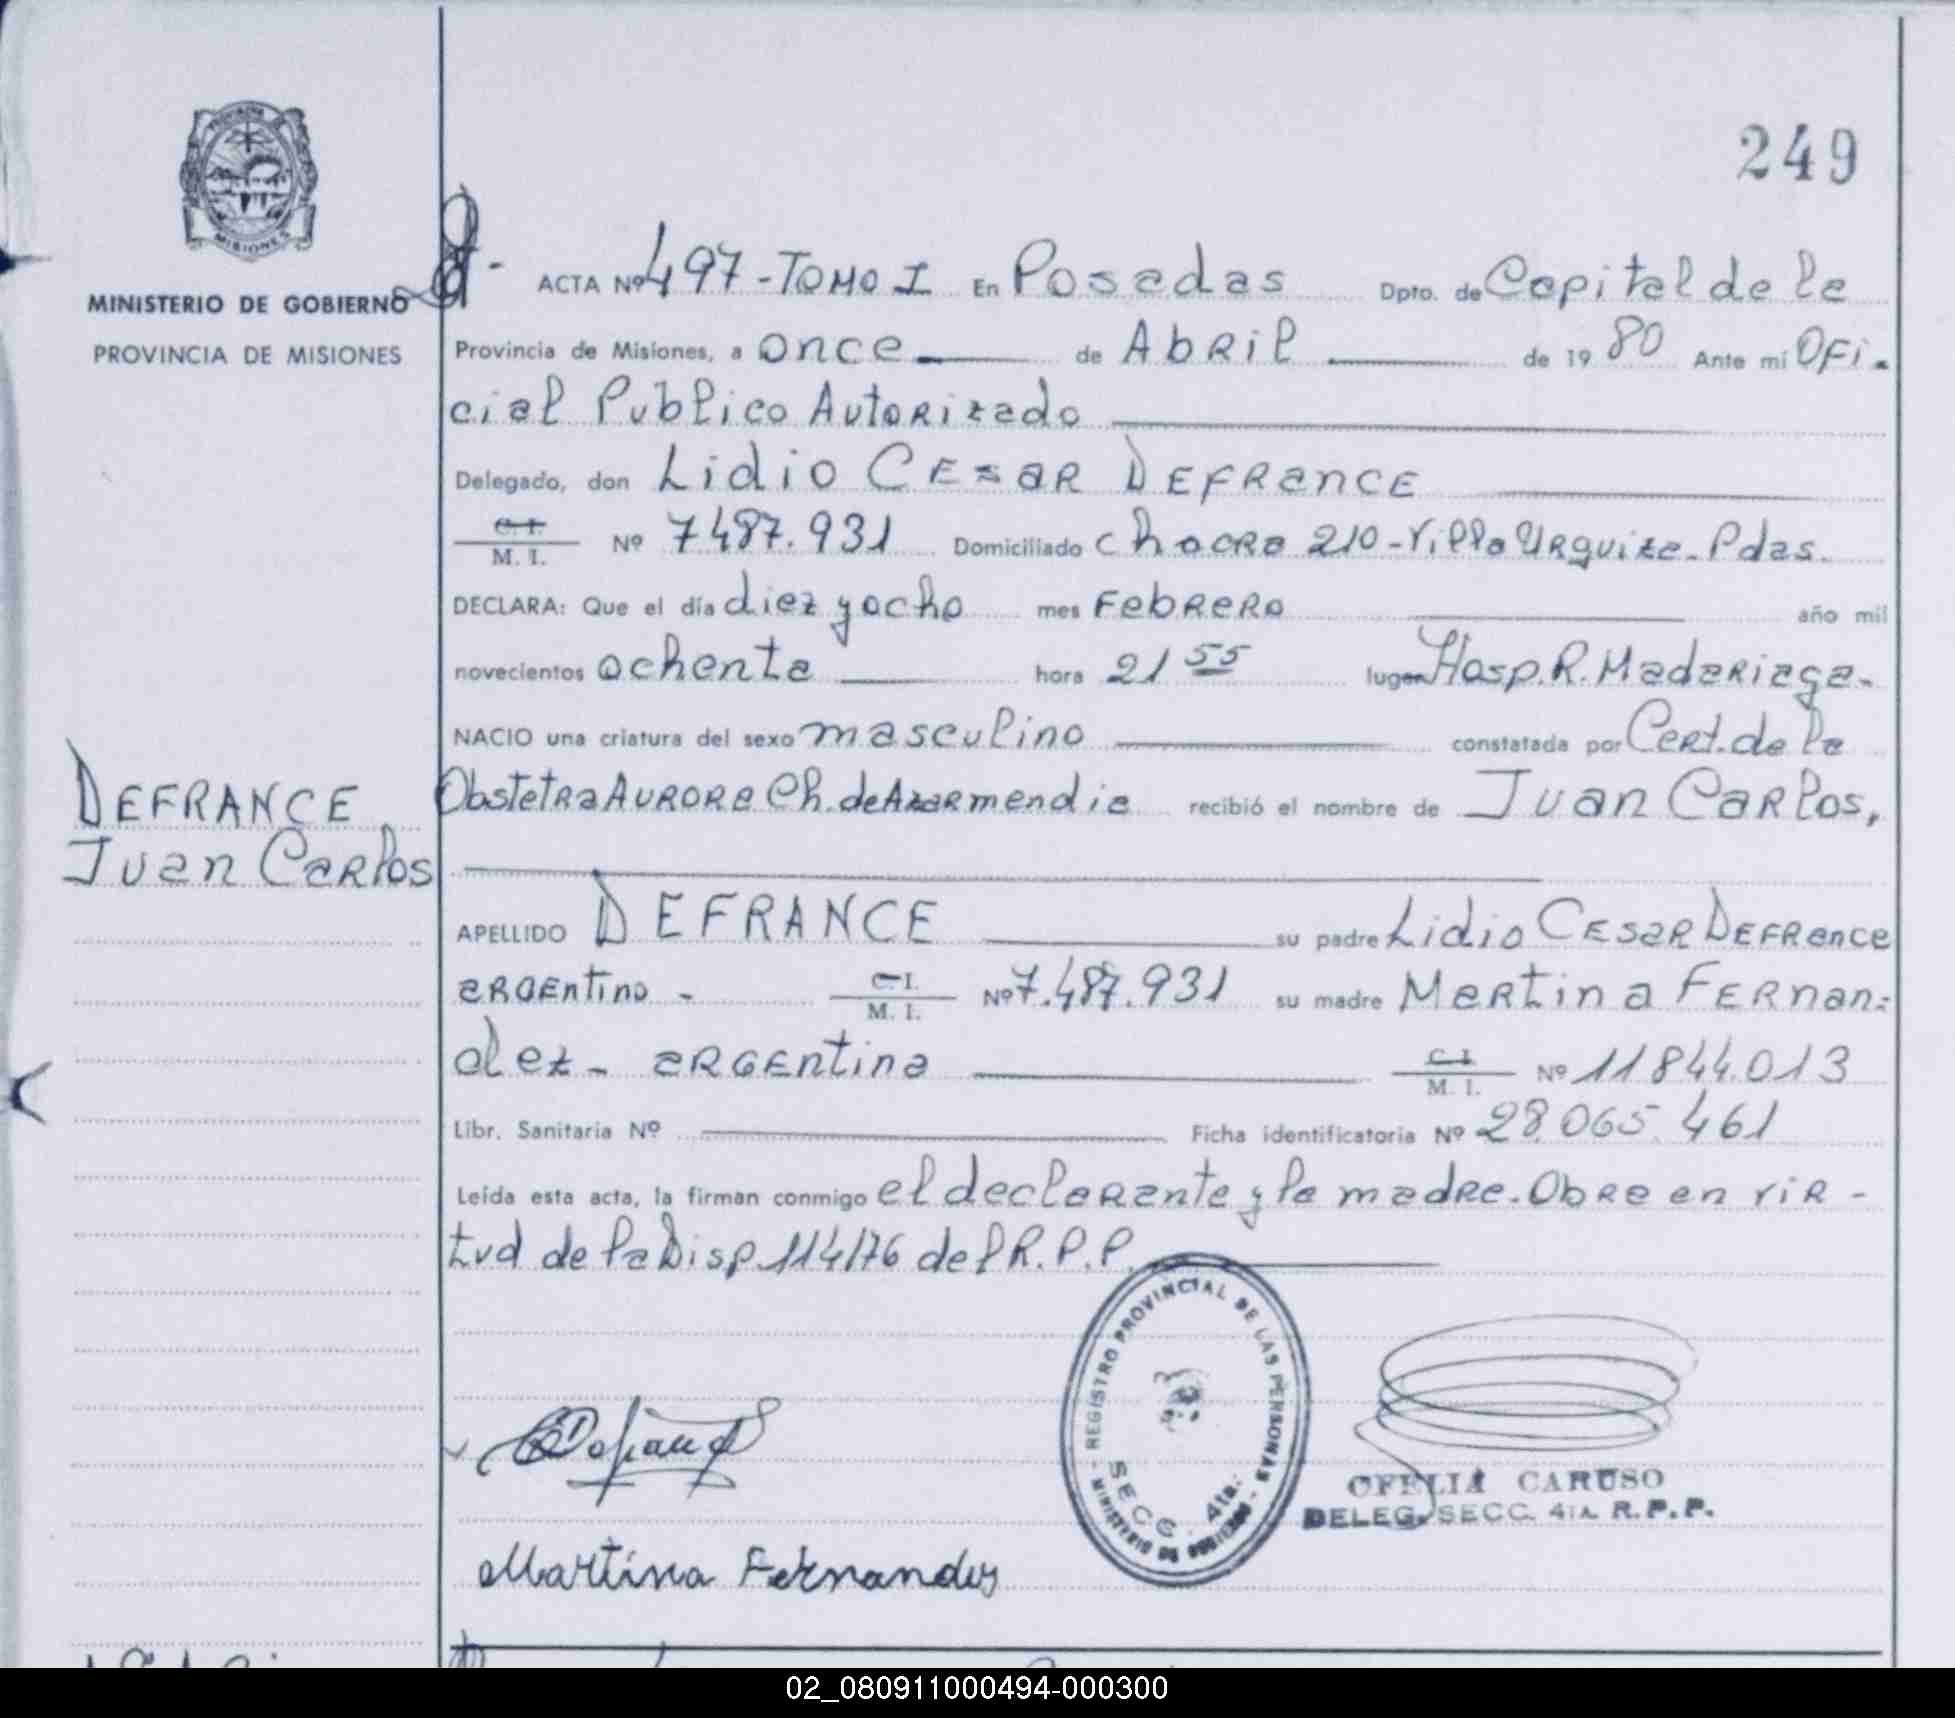 249
MINISTERIO DE GOBIERNO
PROVINCIA DE MISIONES
ACTA Nº 497-TOMO I En Posadas Dpto. de Capital de la
Provincia de Misiones, a once de Abril de 1980 Ante mí Ofi-
cial Publico Autorizado
Delegado, don Lidio Cesar Defrance
C. I.
M. I. Nº 7487.931 Domiciliado Chacra 210-Villa Urquiza-Pdas.
DECLARA: Que el día diez y ocho mes Febrero año mil
novecientos ochenta hora 21 55 lugar Hosp. R. Madariaga-
NACIO una criatura del sexo masculino constatada por Cert. de la
Obstetra Aurora Ch. de Azarmendia recibió el nombre de Juan Carlos,
DEFRANCE
Juan Carlos
APELLIDO DEFRANCE su padre Lidio Cesar Defrance
argentino - C. I.
M. I. Nº 7.487.931 su madre Martina Fernan-
dez- argentina C. I.
M. I. Nº 11844.013
Libr. Sanitaria Nº Ficha identificatoria Nº 28.065.461
Leída esta acta, la firman conmigo el declarante y la madre. Obra en vir-
tud de la Disp. 114/76 del R.P.P.
REGISTRO PROVINCIAL DE LAS PERSONAS - MINISTERIO DE GOBIERNO -
SECC. 4ta.
OFELIA CARUSO
DELEG. SECC. 4TA. R.P.P.
Martina Fernandez
02_080911000494-000300